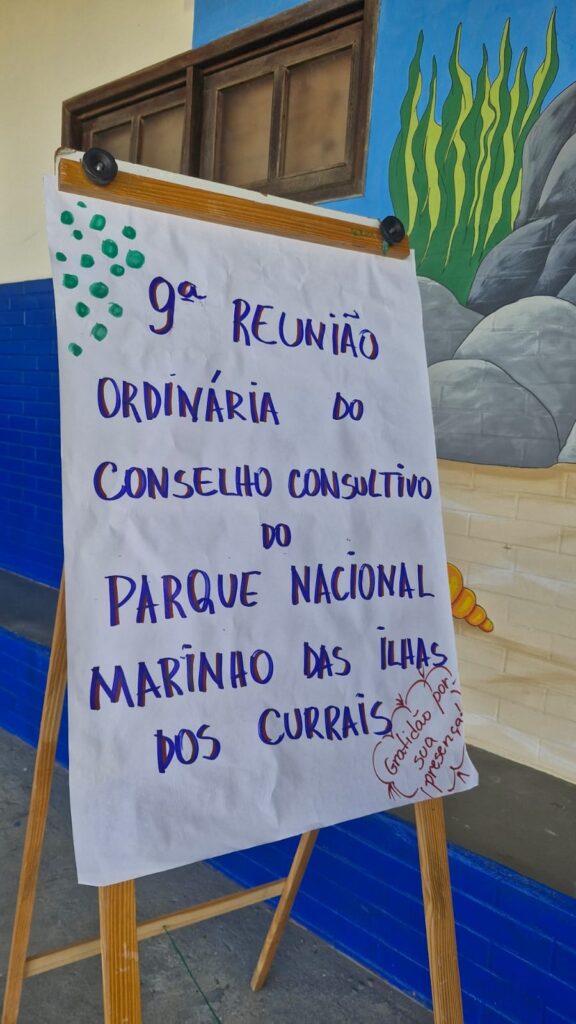 9ª REUNIÃO
ORDINÁRIA DO
CONSELHO CONSULTIVO
DO
PARQUE NACIONAL
MARINHO DAS ILHAS
DOS CURRAIS
Gratidão por
sua
presença!